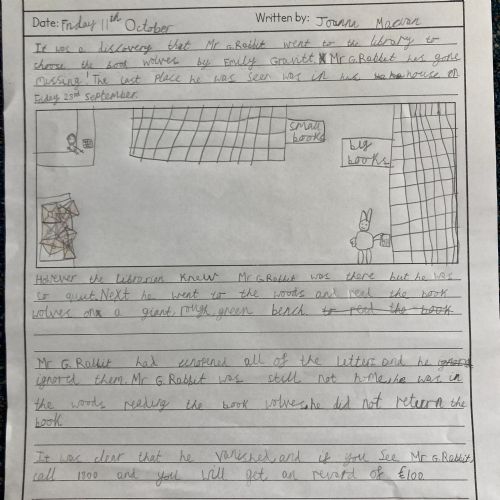 Date: Friday 11th October Written by: Joanna Marian
It was a discovery that Mr G.Rabbit went to the library to
choose the book wolves by Emily Gravitt. Mr G.Rabbit has gone
missing! The last place he was seen was in his house on
Friday 23rd September.
small
books
big
books
However the librarian knew Mr G.Rabbit was there but he was
so quiet. Next he went to the woods and read the book
wolves on a giant, rough, green bench to read the book
Mr G. Rabbit had unopened all of the letters and he ignored
ignored them. Mr G. Rabbit was still not home, he was in
the woods reading the book wolves, he did not return the
book
It was clear that he vanished, and if you see Mr G.Rabbit,
call 1800 and you will get an reward of €100.